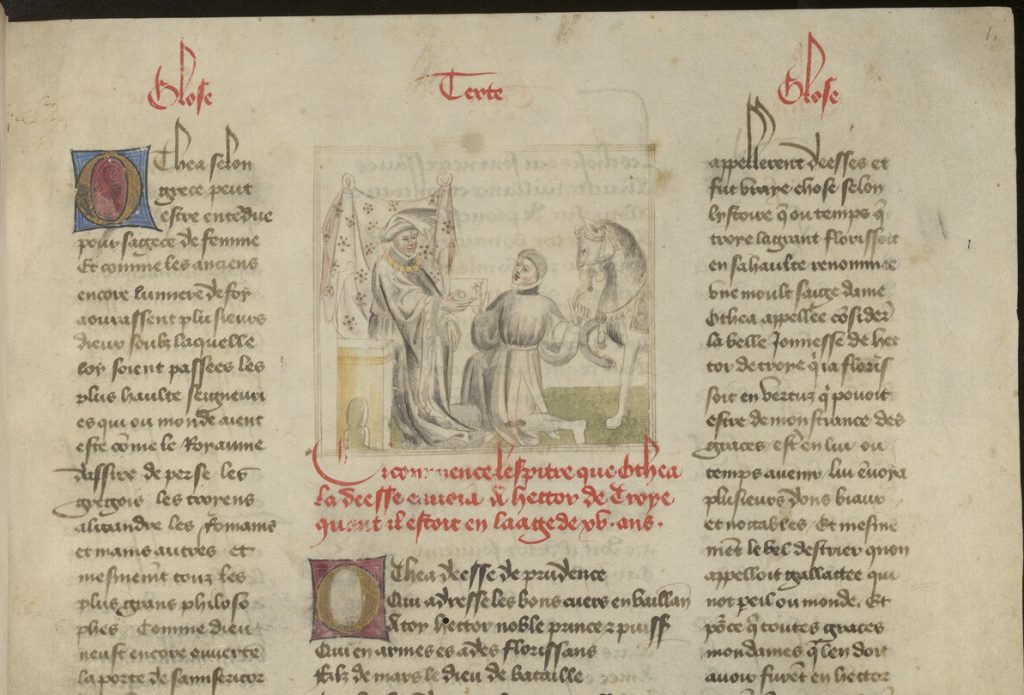 Glose
Othea selon
grece peut
estre entēdue
pour sagece de femme
Et comme les anciens
encore lumiere de foy
aourassent plusieurs
dieux soubz laquelle
loy soient passees les
plus haulte seigneuri
es qui ou monde aient
este cōme le Royaume
dassire de perse les
gregois les troyens
alixandre les Romains
et mains autres et
mesmemēt touz les
plus grans philoso
phes Comme dieu
neust encore ouverte
la porte de sa misericor
Texte
Cy commence lespitre que Othea
la deesse envoia A hector de Troye
quant il estoit en laage de xv. ans.
Othea deesse de prudence
Qui adresse les bons cuers en vaillan
A toy hector noble prince z puiss
Qui en armes es ades florissans
Filz de mars le dieu de bataille
Glose
appellerent deesses et
fut vraye chose selon
lystoire q̄ ou temps q̄
troye la grant florissoit
en sa haulte renommee
vne moult saige dame
Othea appellee cōsiderā
la belle Jonnesse de hec
tor de troye q̄ ia floris
soit en vertuz q̄ pouoit
estre demonstrance des
graces estre en lui ou
temps avenir lui envoya
plusieurs dons biaux
et nottables Et mesme
mēt le bel destrier quon
appelloit gallattee qui
not peil ou monde. Et
pōce q̄ toutes graces
mondaines q̄ len doit
avoir furēt en hector
1.